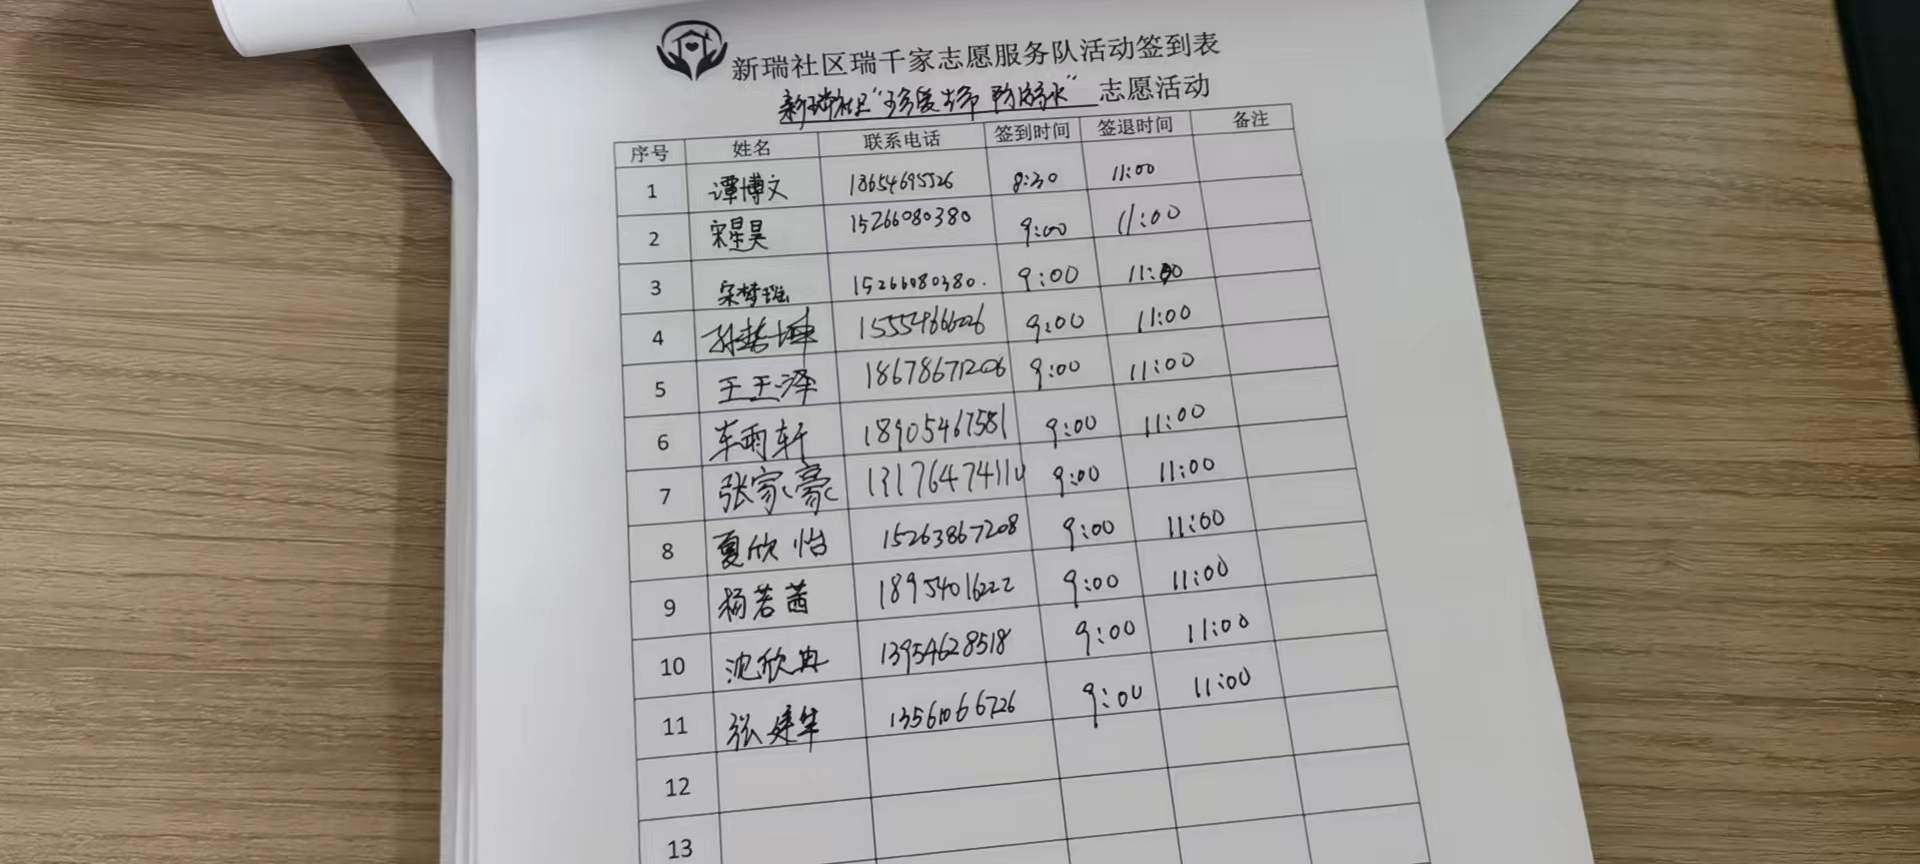 新瑞社区瑞千家志愿服务队活动签到表
新瑞社区“珍爱生命 防溺水” 志愿活动
序号 姓名 联系电话 签到时间 签退时间 备注
1 谭博文 18654695526 8:30 11:00
2 宋星昊 15266080380 9:00 11:00
3 宋梦瑶 15266080380. 9:00 11:00
4 孙哲坤 15554866026 9:00 11:00
5 王玉泽 18678671206 9:00 11:00
6 车雨轩 18905467581 9:00 11:00
7 张家豪 13176474110 9:00 11:00
8 夏欣怡 15263867208 9:00 11:00
9 杨若茜 18954016222 9:00 11:00
10 沈欣冉 13954628518 9:00 11:00
11 张建华 13561066726 9:00 11:00
12
13